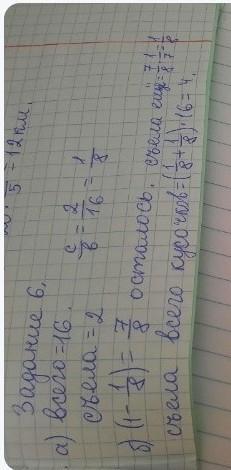 5 = 12 км.
Задание 6.
а) всего = 16.
съела = 2
с/в = 2/16 = 1/8
б) (1 - 1/8) = 7/8 осталось. съела ещё = 7/8 · 1/7 = 1/8
съела всего кусочков = (1/8 + 1/8) · 16 = 4.